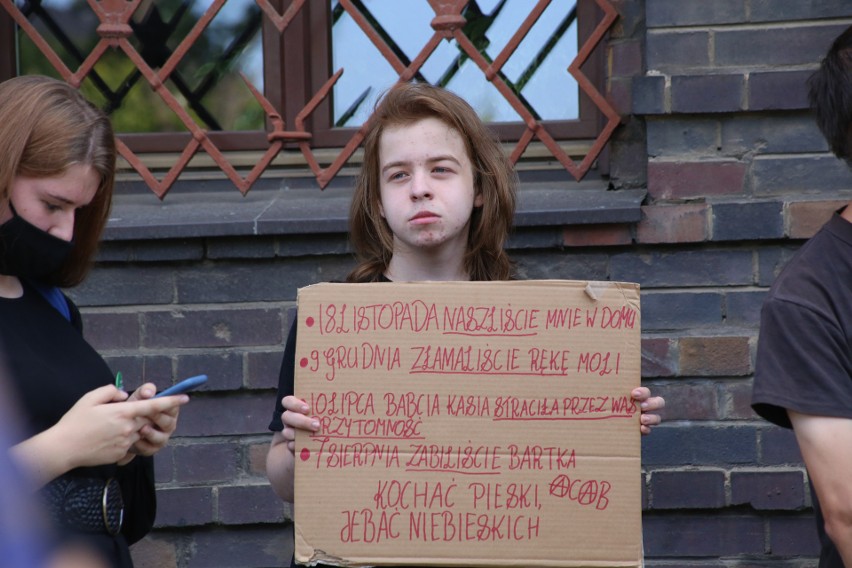 • 18 LISTOPADA NASZLIŚCIE MNIE W DOMU
• 9 GRUDNIA ZŁAMALIŚCIE RĘKĘ MOLI
• 10 LIPCA BABCIA KASIA STRACIŁA PRZEZ WAS
PRZYTOMNOŚĆ
• 7 SIERPNIA ZABILIŚCIE BARTKA
KOCHAĆ PIESKI, ACAB
JEBAĆ NIEBIESKICH